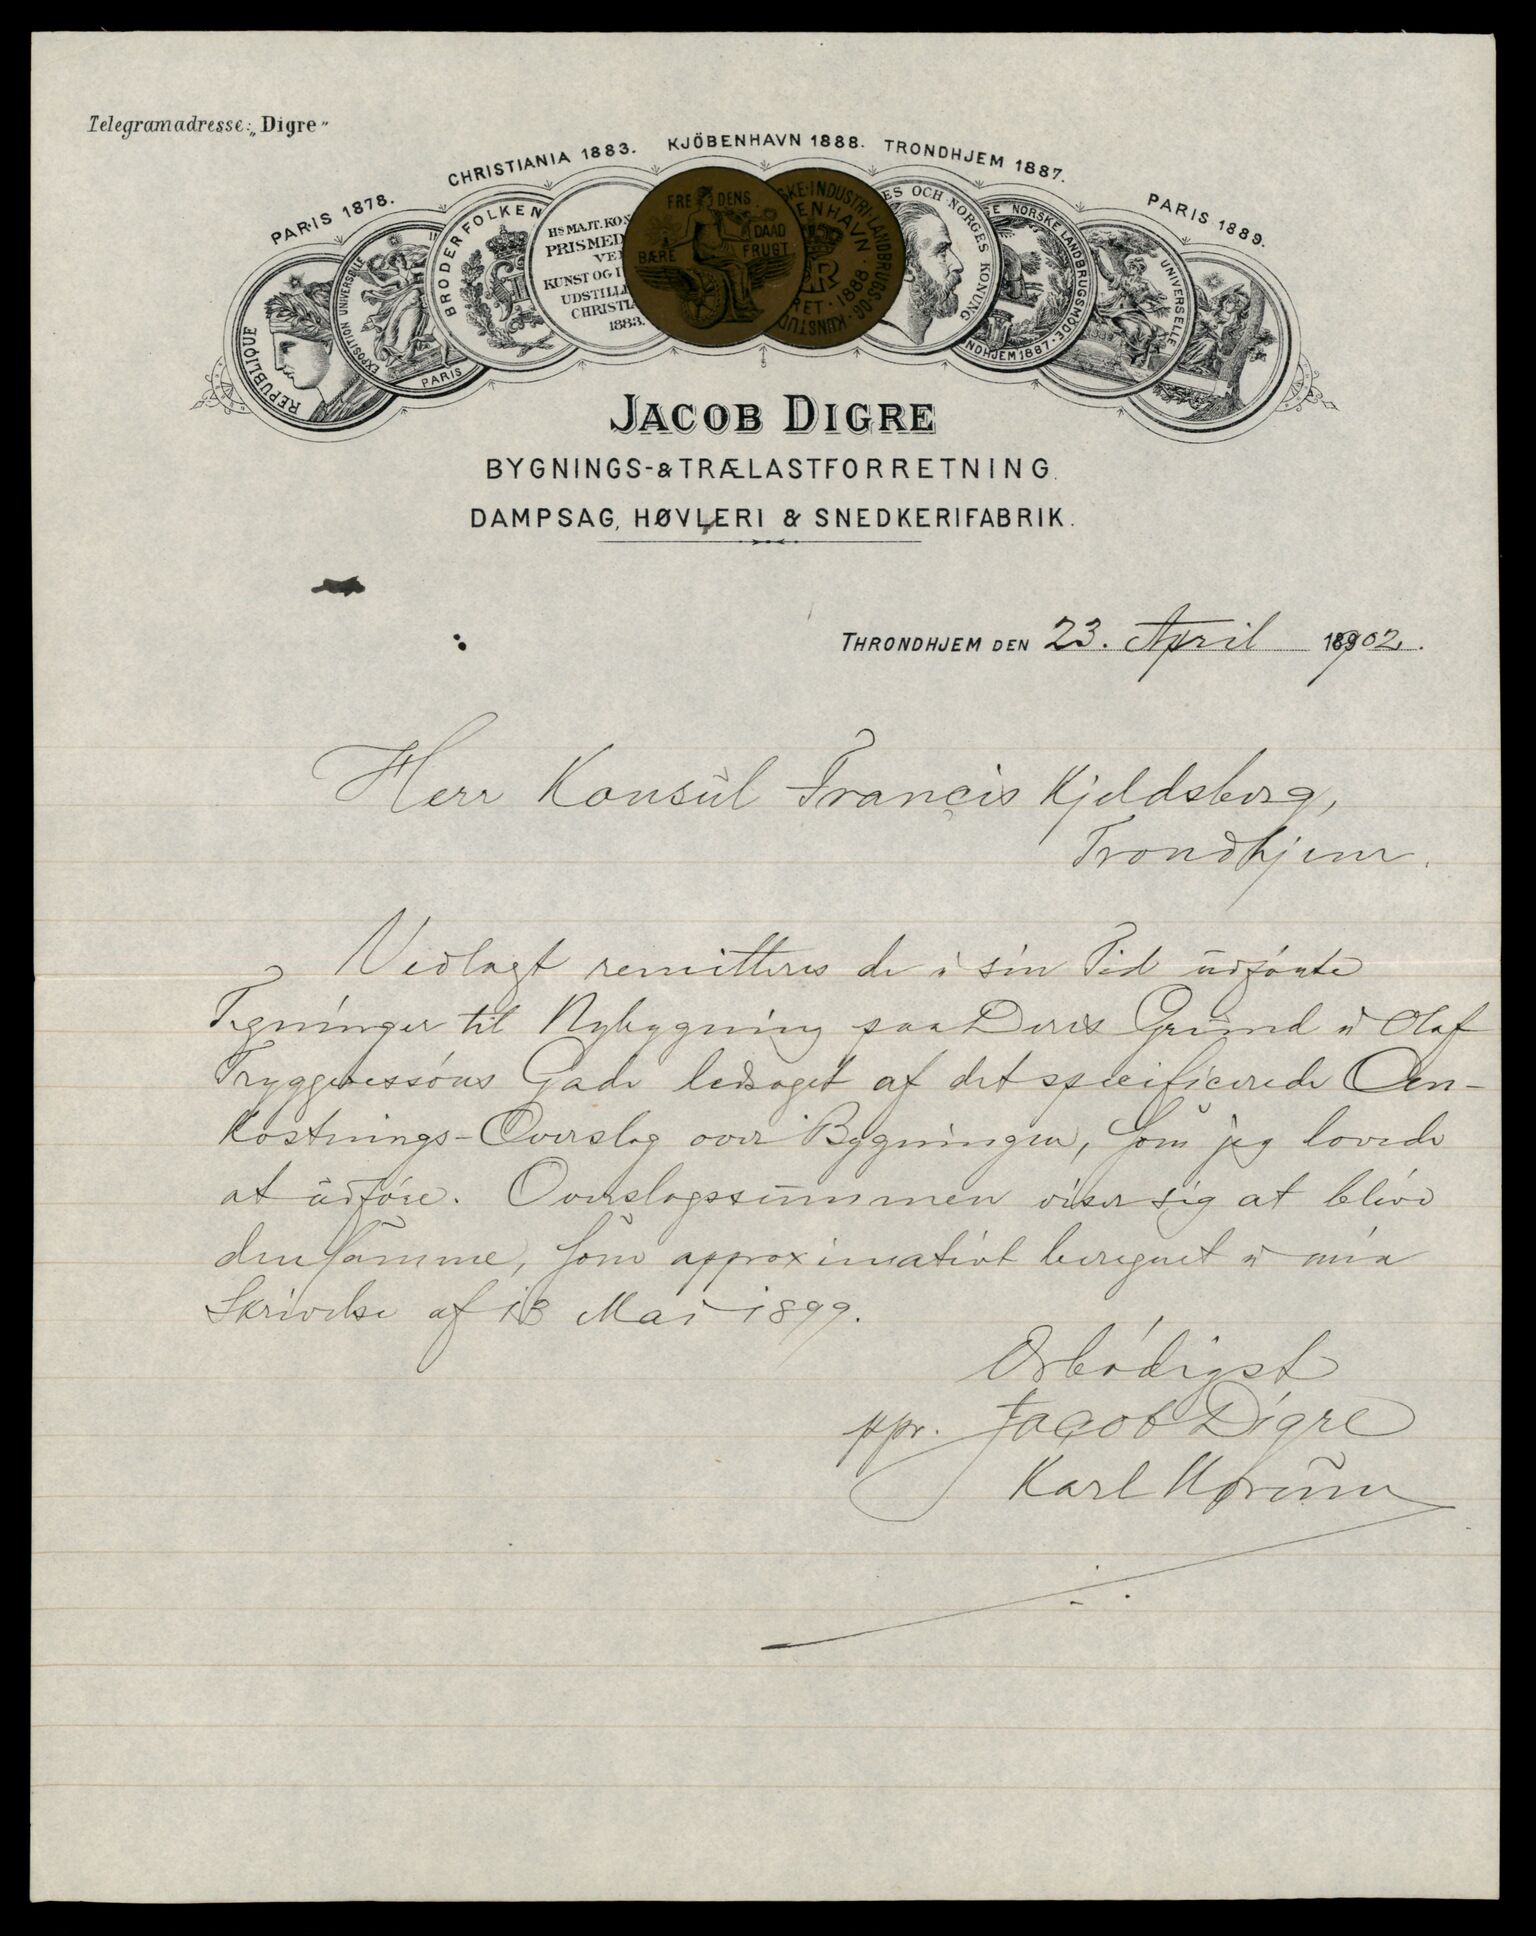 Telegramadresse: „Digre"
PARIS 1878.
CHRISTIANIA 1883.
KJÖBENHAVN 1888.
TRONDHJEM 1887.
PARIS 1889.
REPUBLIQUE
EXPOSITION UNIVERSELLE
PARIS
BRODERFOLKEN
HS MAJT. KON
PRISMED
VE
KUNST OG I
UDSTILL
CHRISTIA
1883.
FREDENS
DAAD
BÆRE FRUGT
SKE·INDUSTRI·LANDBRUGS·OG·KUNSTUD
ENHAVN
RET·1888·
ES OCH NORGES KONUNG
GE NORSKE LANDBRUGSMÖDE
NDHJEM 1887
UNIVERSELLE
JACOB DIGRE
BYGNINGS-& TRÆLASTFORRETNING.
DAMPSAG, HØVLERI & SNEDKERIFABRIK.
THRONDHJEM DEN 23. April 1902.
Herr Konsul Francis Kjeldsberg,
Trondhjem.
Vedlagt remitteres de i sin Tid udførte
Tegninger til Nybygning paa Deres Grund i Olaf
Tryggvessøns Gade ledsaget af det specificerede Om-
kostnings-Overslag over Bygningen, som jeg lovede
at udføre. Overslagssummen viser sig at blive
densamme, som approximativt beregnet i min
Skrivelse af 13 Mai 1899.
Ærbødigst
ppr. Jacob Digre
Karl Norum